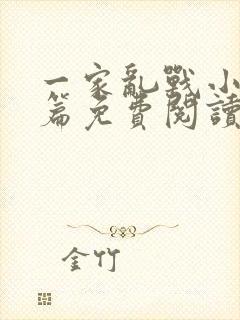 一家亂戰小
篇免費閱讀
金竹